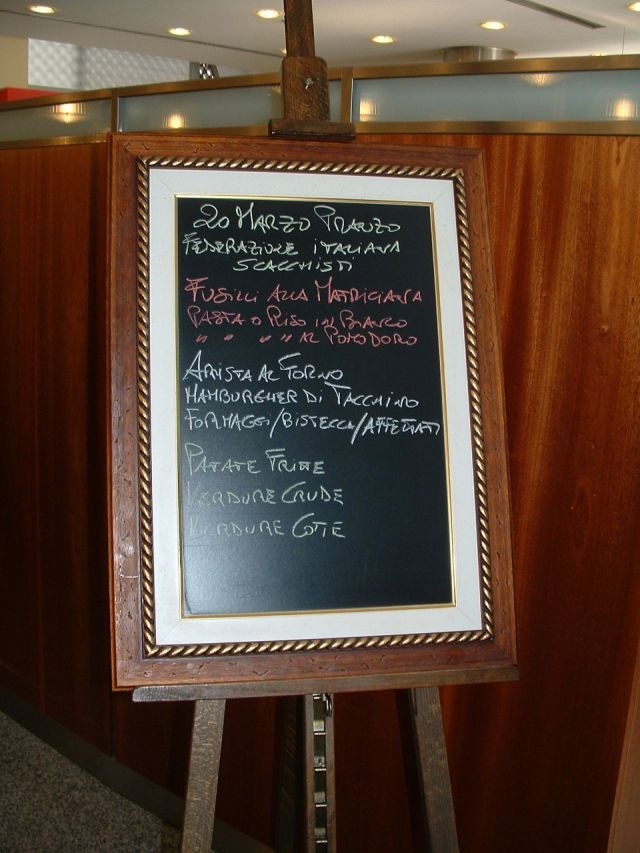 20 MARZO PRANZO
FEDERAZIONE ITALIANA
SCACCHISTI
FUSILLI ALLA MATRICIANA
PASTA O RISO IN BIANCO
" " " " AL POMODORO
ARISTA AL FORNO
HAMBURGHER DI TACCHINO
FORMAGGI/BISTECCA/AFFETTATI
PATATE FRITTE
VERDURE CRUDE
VERDURE COTTE